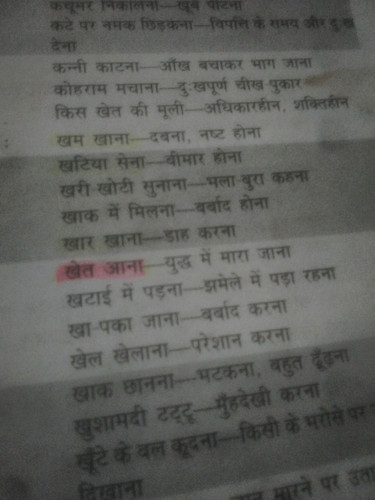 कचूमर निकालना—खूब पीटना
कटे पर नमक छिड़कना—विपत्ति के समय और दुःख
देना
कन्नी काटना—आँख बचाकर भाग जाना
कोहराम मचाना—दुःखपूर्ण चीख पुकार
किस खेत की मूली—अधिकारहीन, शक्तिहीन
खम खाना—दबना, नष्ट होना
खटिया सेना—बीमार होना
खरी-खोटी सुनाना—भला-बुरा कहना
खाक में मिलना—बर्बाद होना
खार खाना—डाह करना
खेत आना—युद्ध में मारा जाना
खटाई में पड़ना—झमेले में पड़ा रहना
खा-पका जाना—बर्बाद करना
खेल खेलाना—परेशान करना
खाक छानना—भटकना, बहुत ढूँढ़ना
खुशामदी टट्टू—मुँहदेखी करना
खूँटे के बल कूदना—किसी के भरोसे पर
दिखाना
मारने पर उता